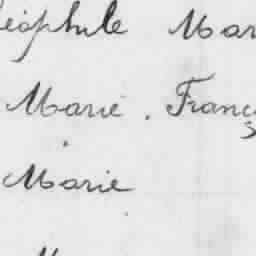 éophile Mar
Marie. Franç
Marie